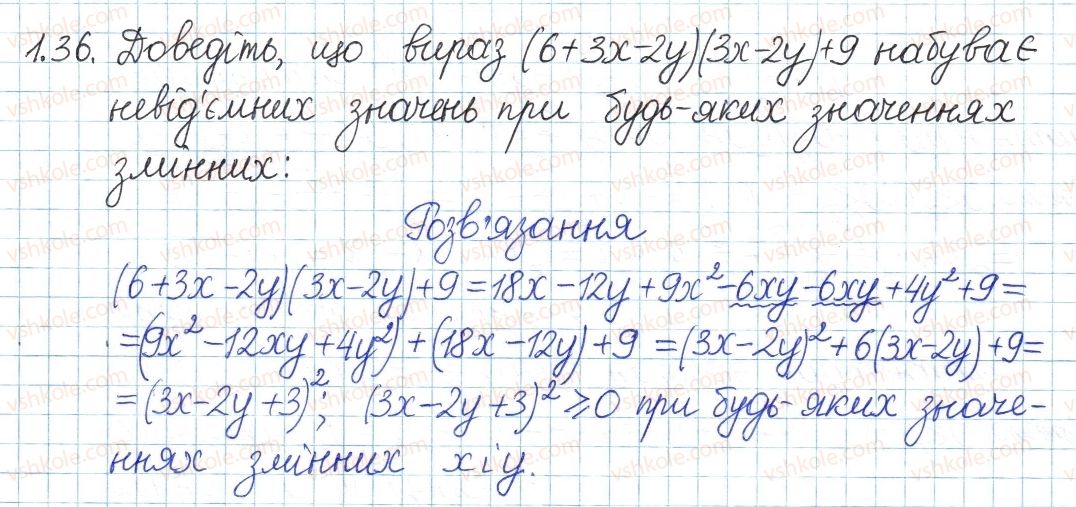 1.36. Доведіть, що вираз (6+3x-2y)(3x-2y)+9 набуває
невід'ємних значень при будь-яких значеннях
змінних:
Розв'язання
(6+3x-2y)(3x-2y)+9=18x-12y+9x²-6xy-6xy+4y²+9=
=(9x²-12xy+4y²)+(18x-12y)+9 =(3x-2y)²+6(3x-2y)+9=
=(3x-2y+3)²; (3x-2y+3)²≥0 при будь-яких значе-
ннях змінних x і y.